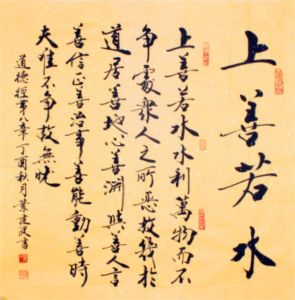 上善若水
上善若水水利萬物而不
争處衆人之所惡故幾於
道居善地心善渊與善人言
善信正善治事善能動善時
夫唯不争故無忧
道德經第八章丁酉秋月書